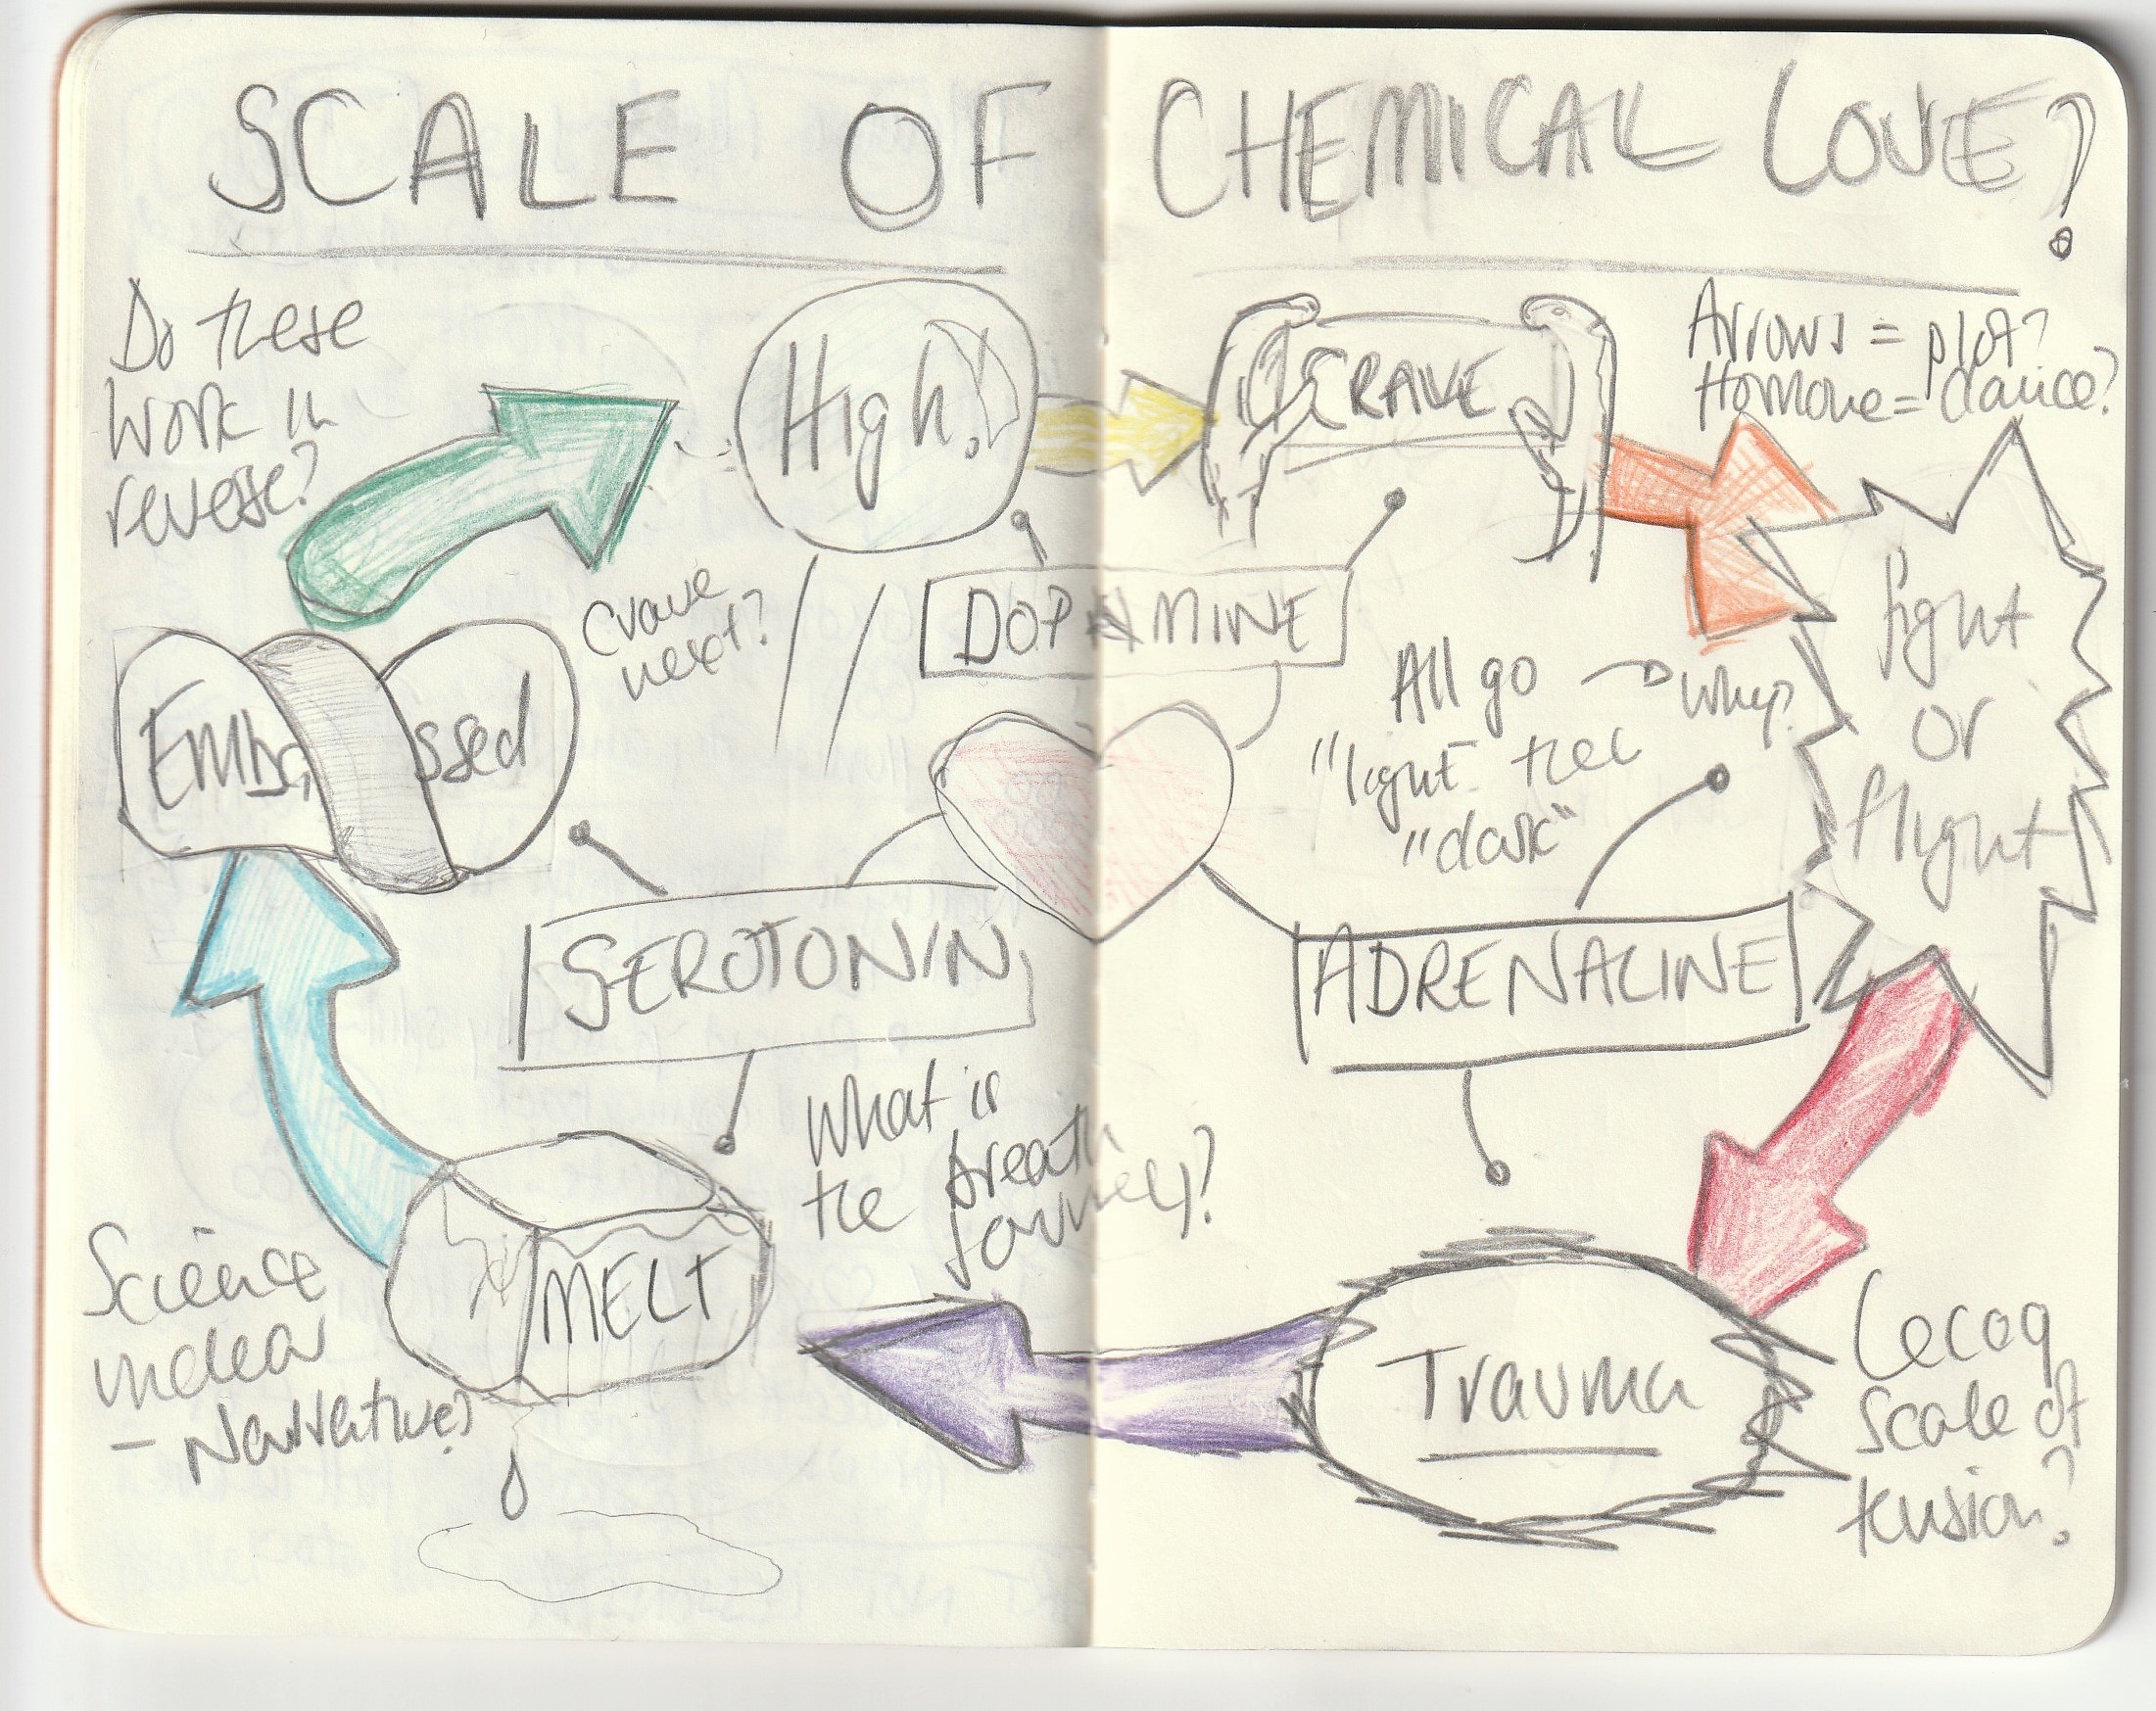 SCALE OF CHEMICAL LOVE?
Do these
work in
reverse?
High!
CRAVE
Arrows = plot?
Hormone = dance?
crave
next?
DOPAMINE
fight
or
flight
All go → why?
"light" then
"dark"
Embra ssed
SEROTONIN
ADRENALINE
What is
the breath
journey?
MELT
Science
unclear
- Narrative?
Trauma
Lecoq
scale of
tension?